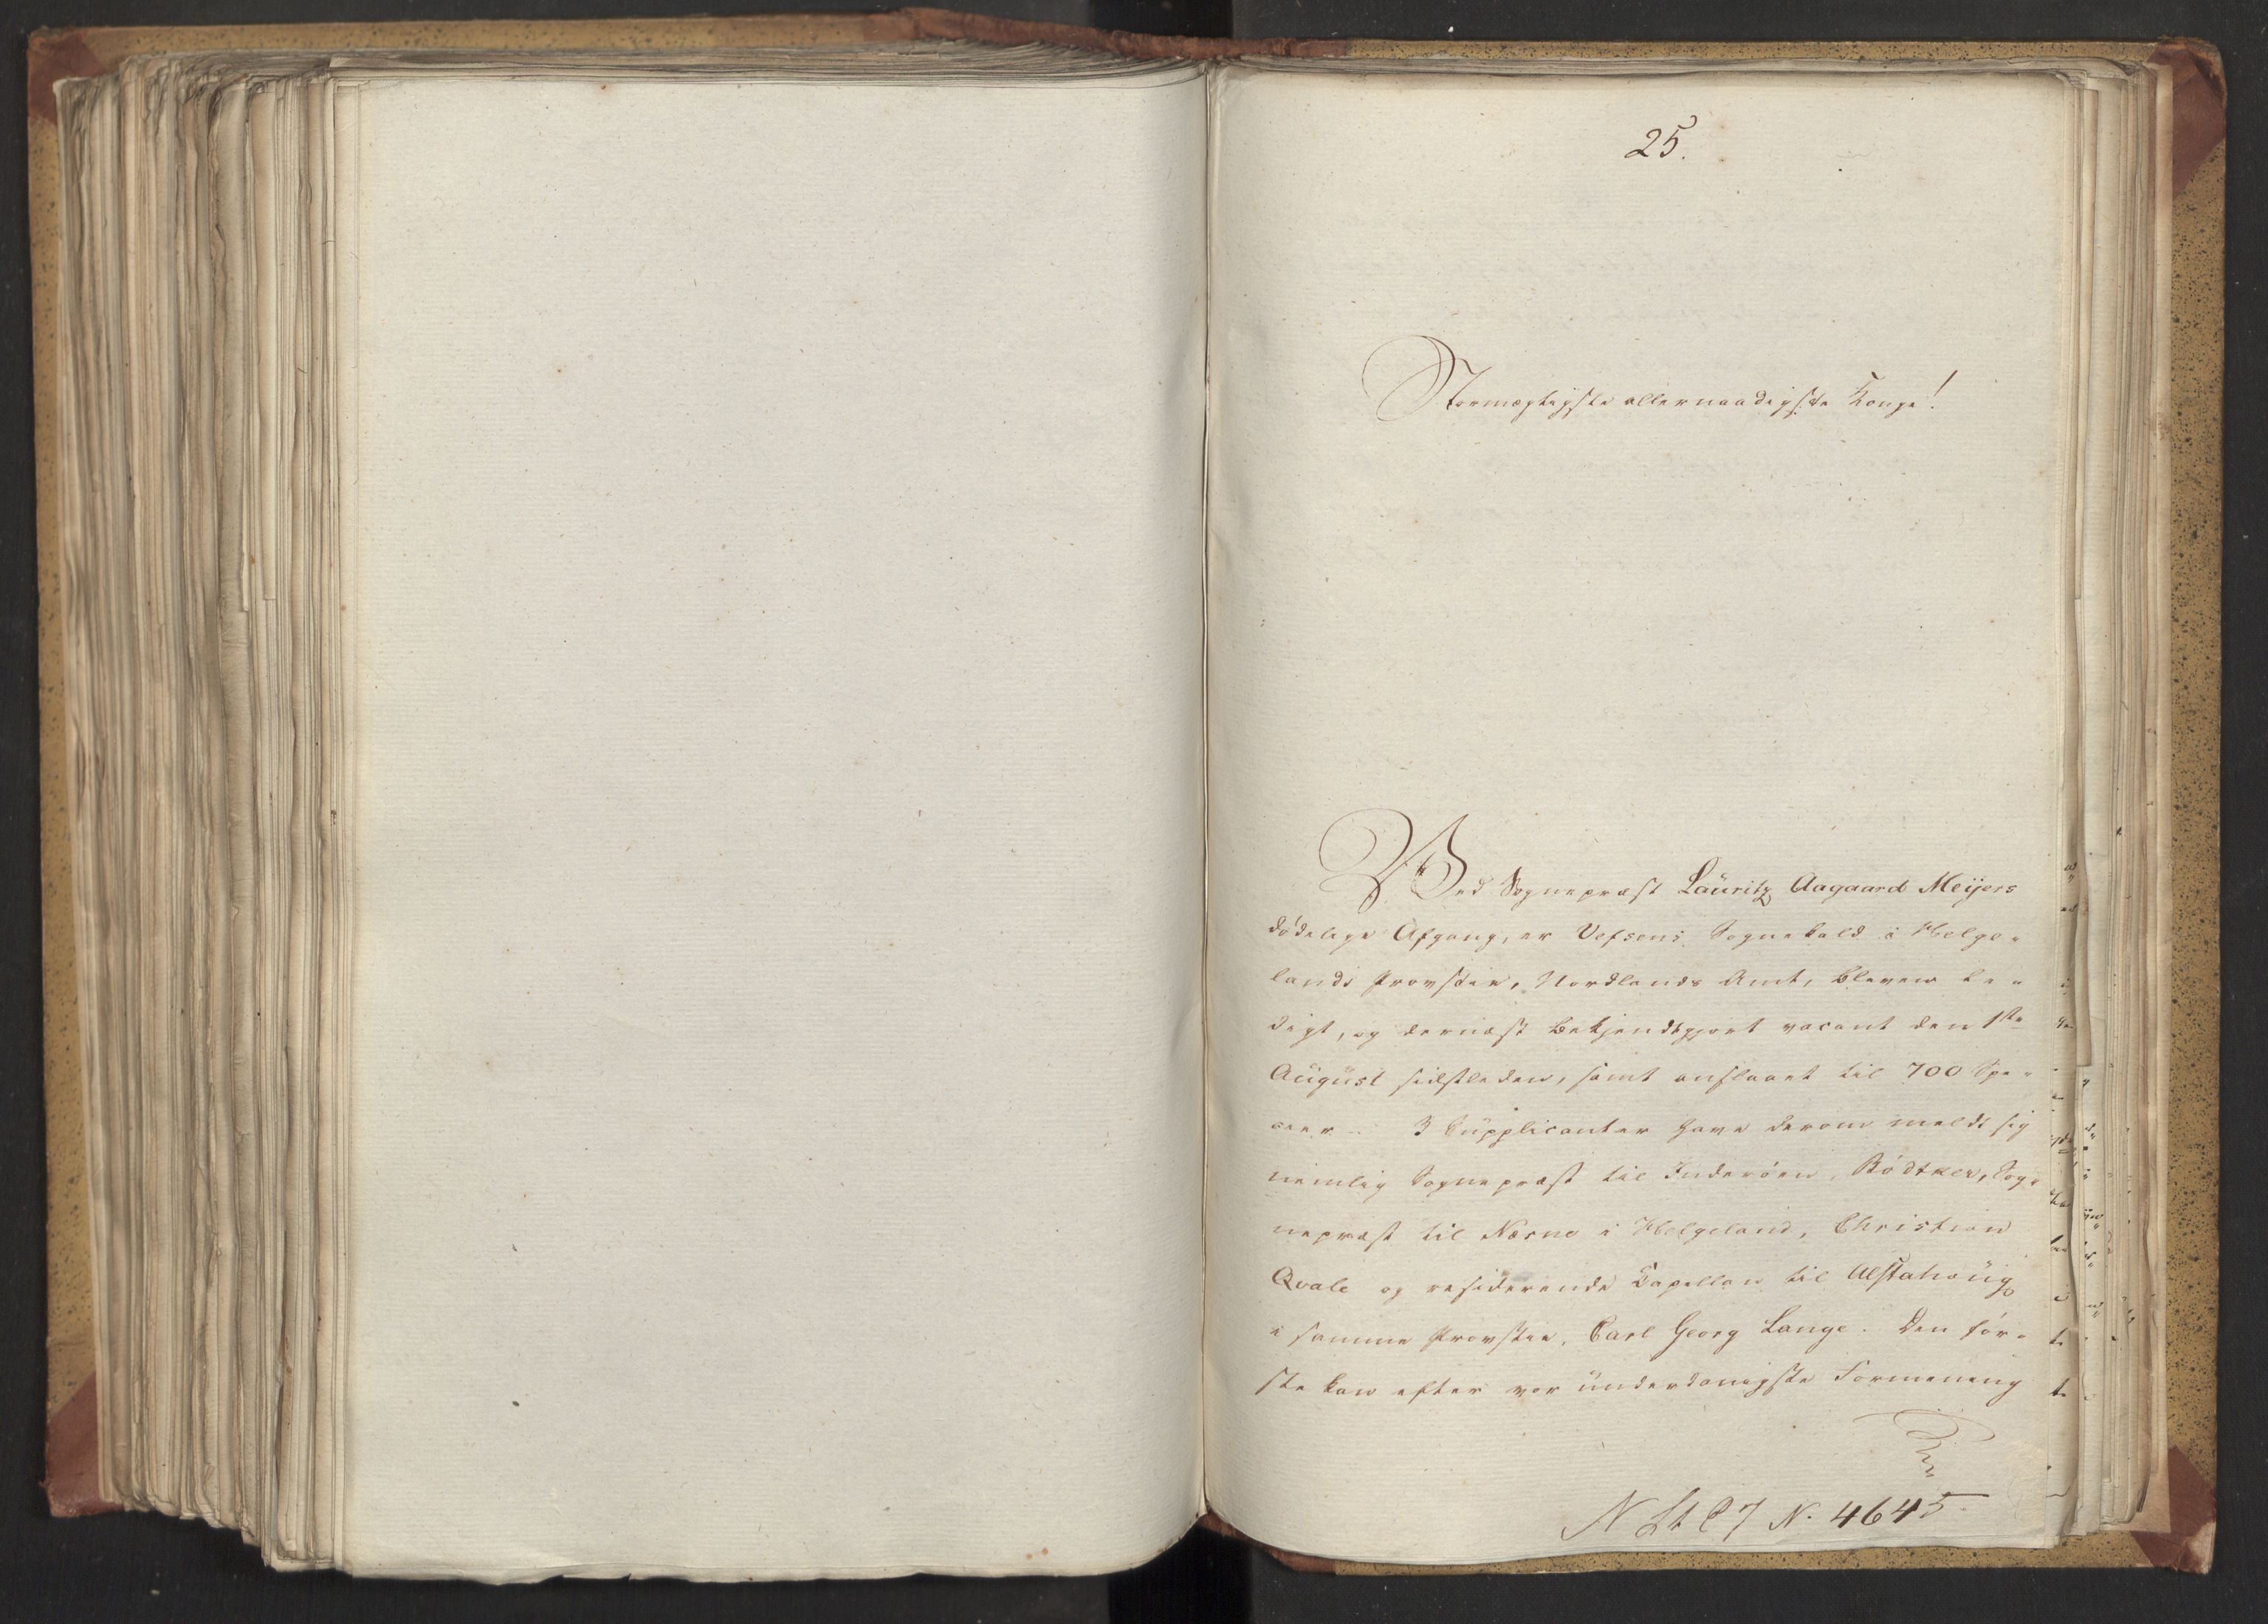 25.
Stormægtigste allernaadigste Konge!
Ved Sognepræst Lauritz Aagaard Meijers
dødelige Afgang, er Vefsens Sognekald i Helge-
lands Provstie, Nordlands Amt, bleven le-
digt, og dernæst bekjendtgjort vacant den 1ste
August sidstleden, samt anslaaet til 700 Spe-
cier. 3 Supplicanter have derom meldt sig
nemlig Sognepræst til Inderøen, Bødtker, Sog-
nepræst til Næsne i Helgeland, Christian
Qvale og residerende Kapellan til Alstahoug
i samme Provstie, Carl Georg Lange. Den før-
ste kan efter vor underdanigste Formening
N. 4645